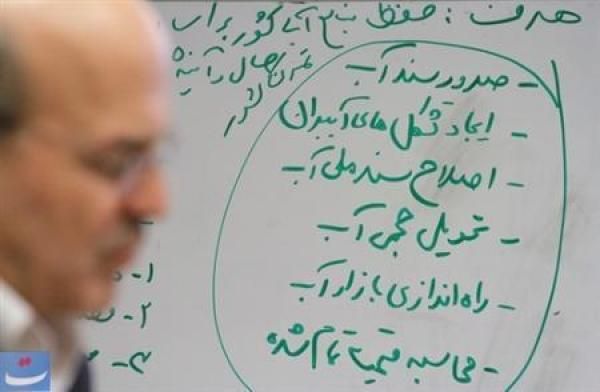 هدف : حفظ منابع آبی کشور برای
نسل حال و آینده
کشور
- صدور سند آب
- ایجاد تشکل های آببران
- اصلاح سند ملی آب
- تحویل حجمی آب
- راه اندازی بازار آب
- محاسبه قیمت تمام شده
۱-
۲-
۳-